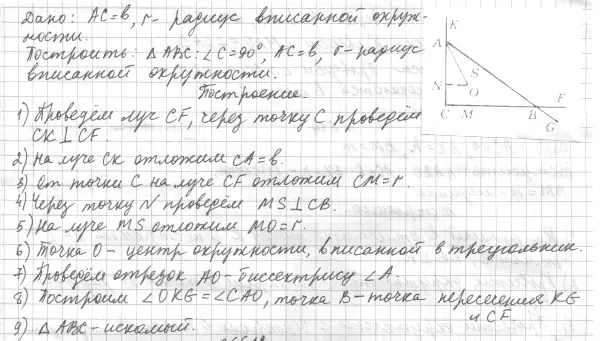 Дано: AC=b, r - радиус вписанной окруж-
ности.
Построить: △ABC: ∠C=90°, AC=b, r - радиус
вписанной окружности.
Построение.
1) Проведём луч CF, через точку C проведём
CK⊥CF.
2) На луче CK отложим CA=b.
3) От точки C на луче CF отложим CM=r.
4) Через точку N проведём MS⊥CB.
5) На луче MS отложим MO=r.
6) Точка O - центр окружности, вписанной в треугольник.
7) Проведём отрезок AO - биссектрису ∠A.
8) Построим ∠OKG=∠CAO, точка B - точка пересечения KG
и CF.
9) △ABC - искомый.
K
A
S
N
O
C M B F
G